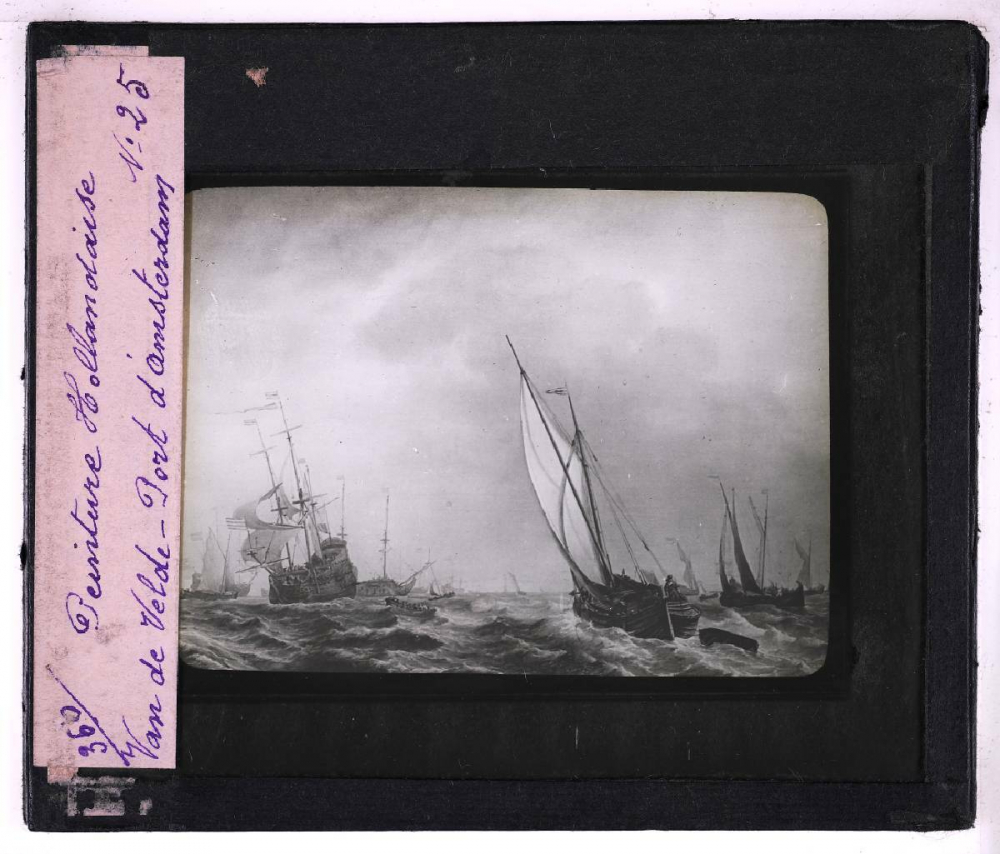 360/ Peinture Hollandaise
Van de Velde - Port d'amsterdam N: 25